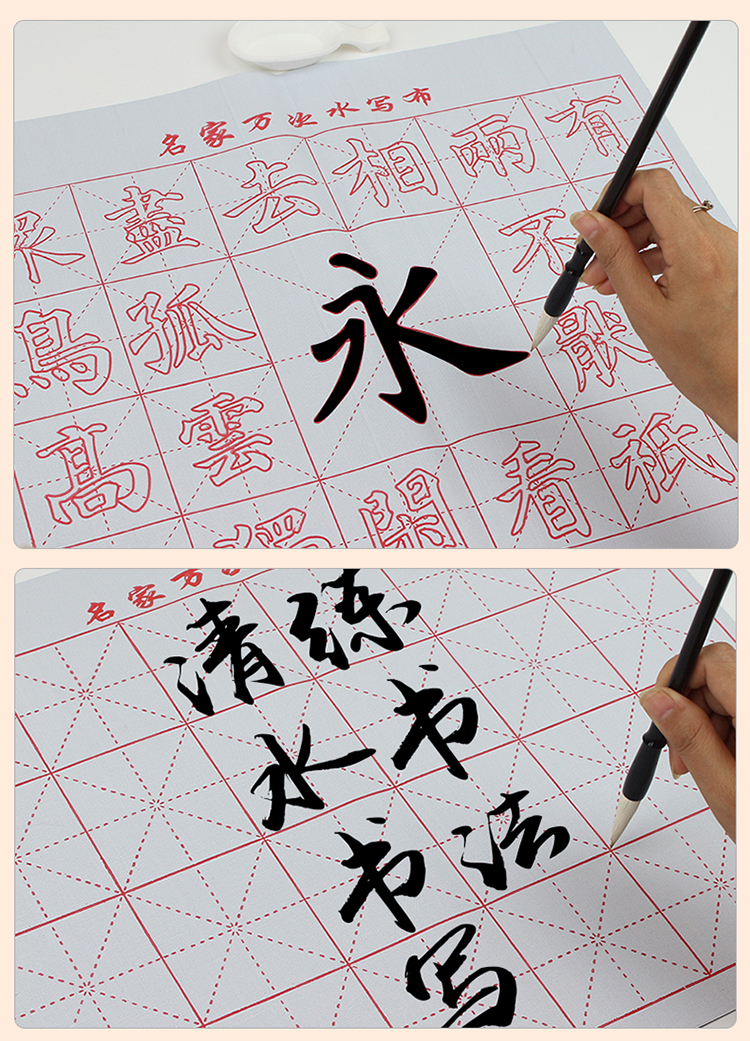 名家万次水写布
衆盡去相兩有
鳥孤永不
高雲厭
獨閑看祇
名家万
清水书写
练书法